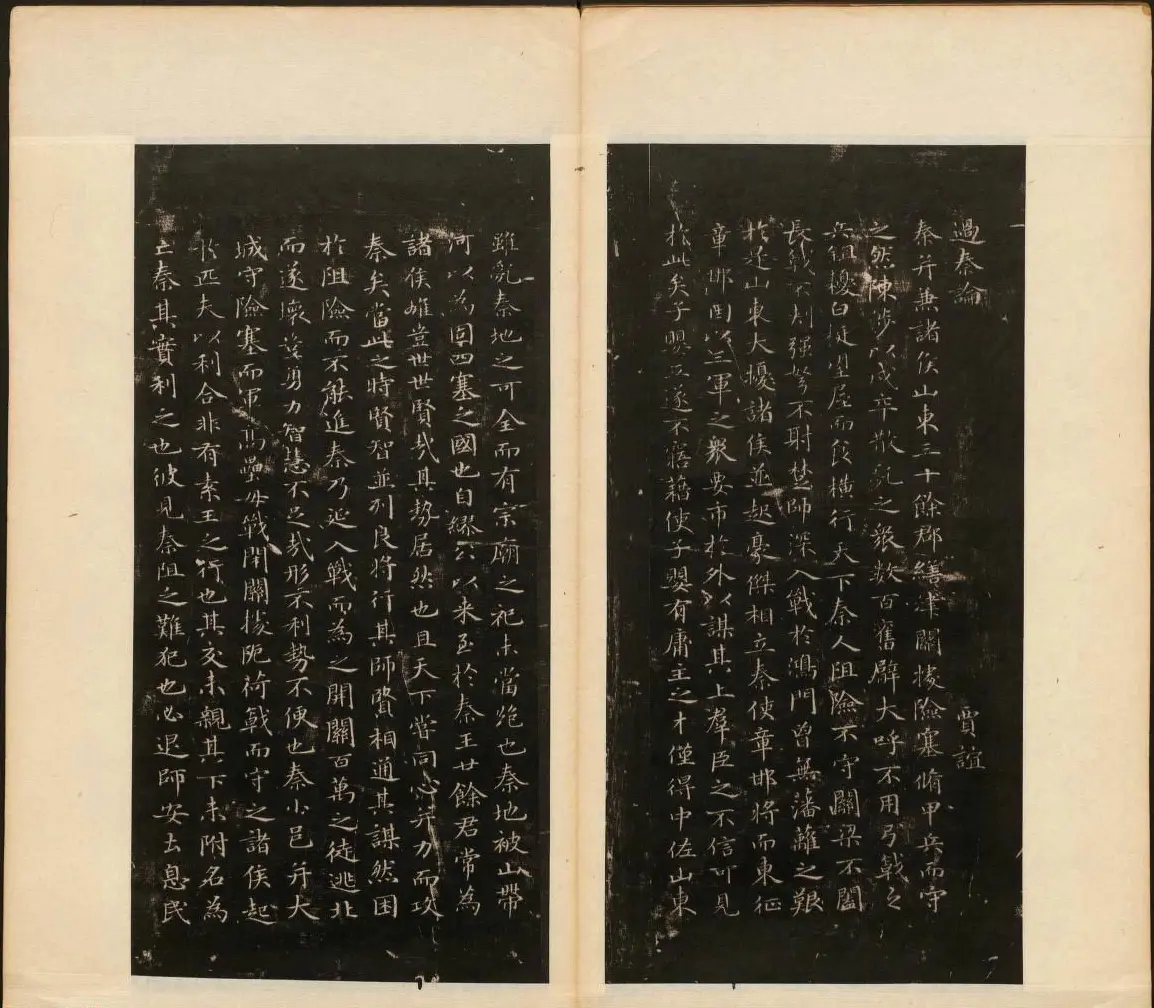 過秦論 賈誼
秦并兼諸侯山東三十餘郡繕津關據險塞脩甲兵而守
之然陳涉以戍卒散亂之衆數百奮臂大呼不用弓戟之
兵鉏櫌白梃望屋而食橫行天下秦人阻險不守關梁不闔
長戟不刺强弩不射楚師深入戰於鴻門曾無藩籬之艱
於是山東大擾諸侯並起豪傑相立秦使章邯將而東征
章邯因以三軍之衆要市於外以謀其上羣臣之不信可見
於此矣子嬰立遂不寤藉使子嬰有庸主之才僅得中佐山東
雖亂秦地之可全而有宗廟之祀未當絶也秦地被山帶
河以為固四塞之國也自繆公以来至於秦王廿餘君常為
諸侯雄豈世世賢哉其勢居然也且天下嘗同心并力而攻
秦矣當此之時賢智並列良將行其師賢相通其謀然困
於阻險而不能進秦乃延入戰而為之開關百萬之徒逃北
而遂壞豈勇力智慧不足哉形不利勢不便也秦小邑并大
城守險塞而軍高壘毋戰閉關據阨荷戟而守之諸侯起
於匹夫以利合非有素王之行也其交未親其下未附名為
亡秦其實利之也彼見秦阻之難犯也必退師安土息民